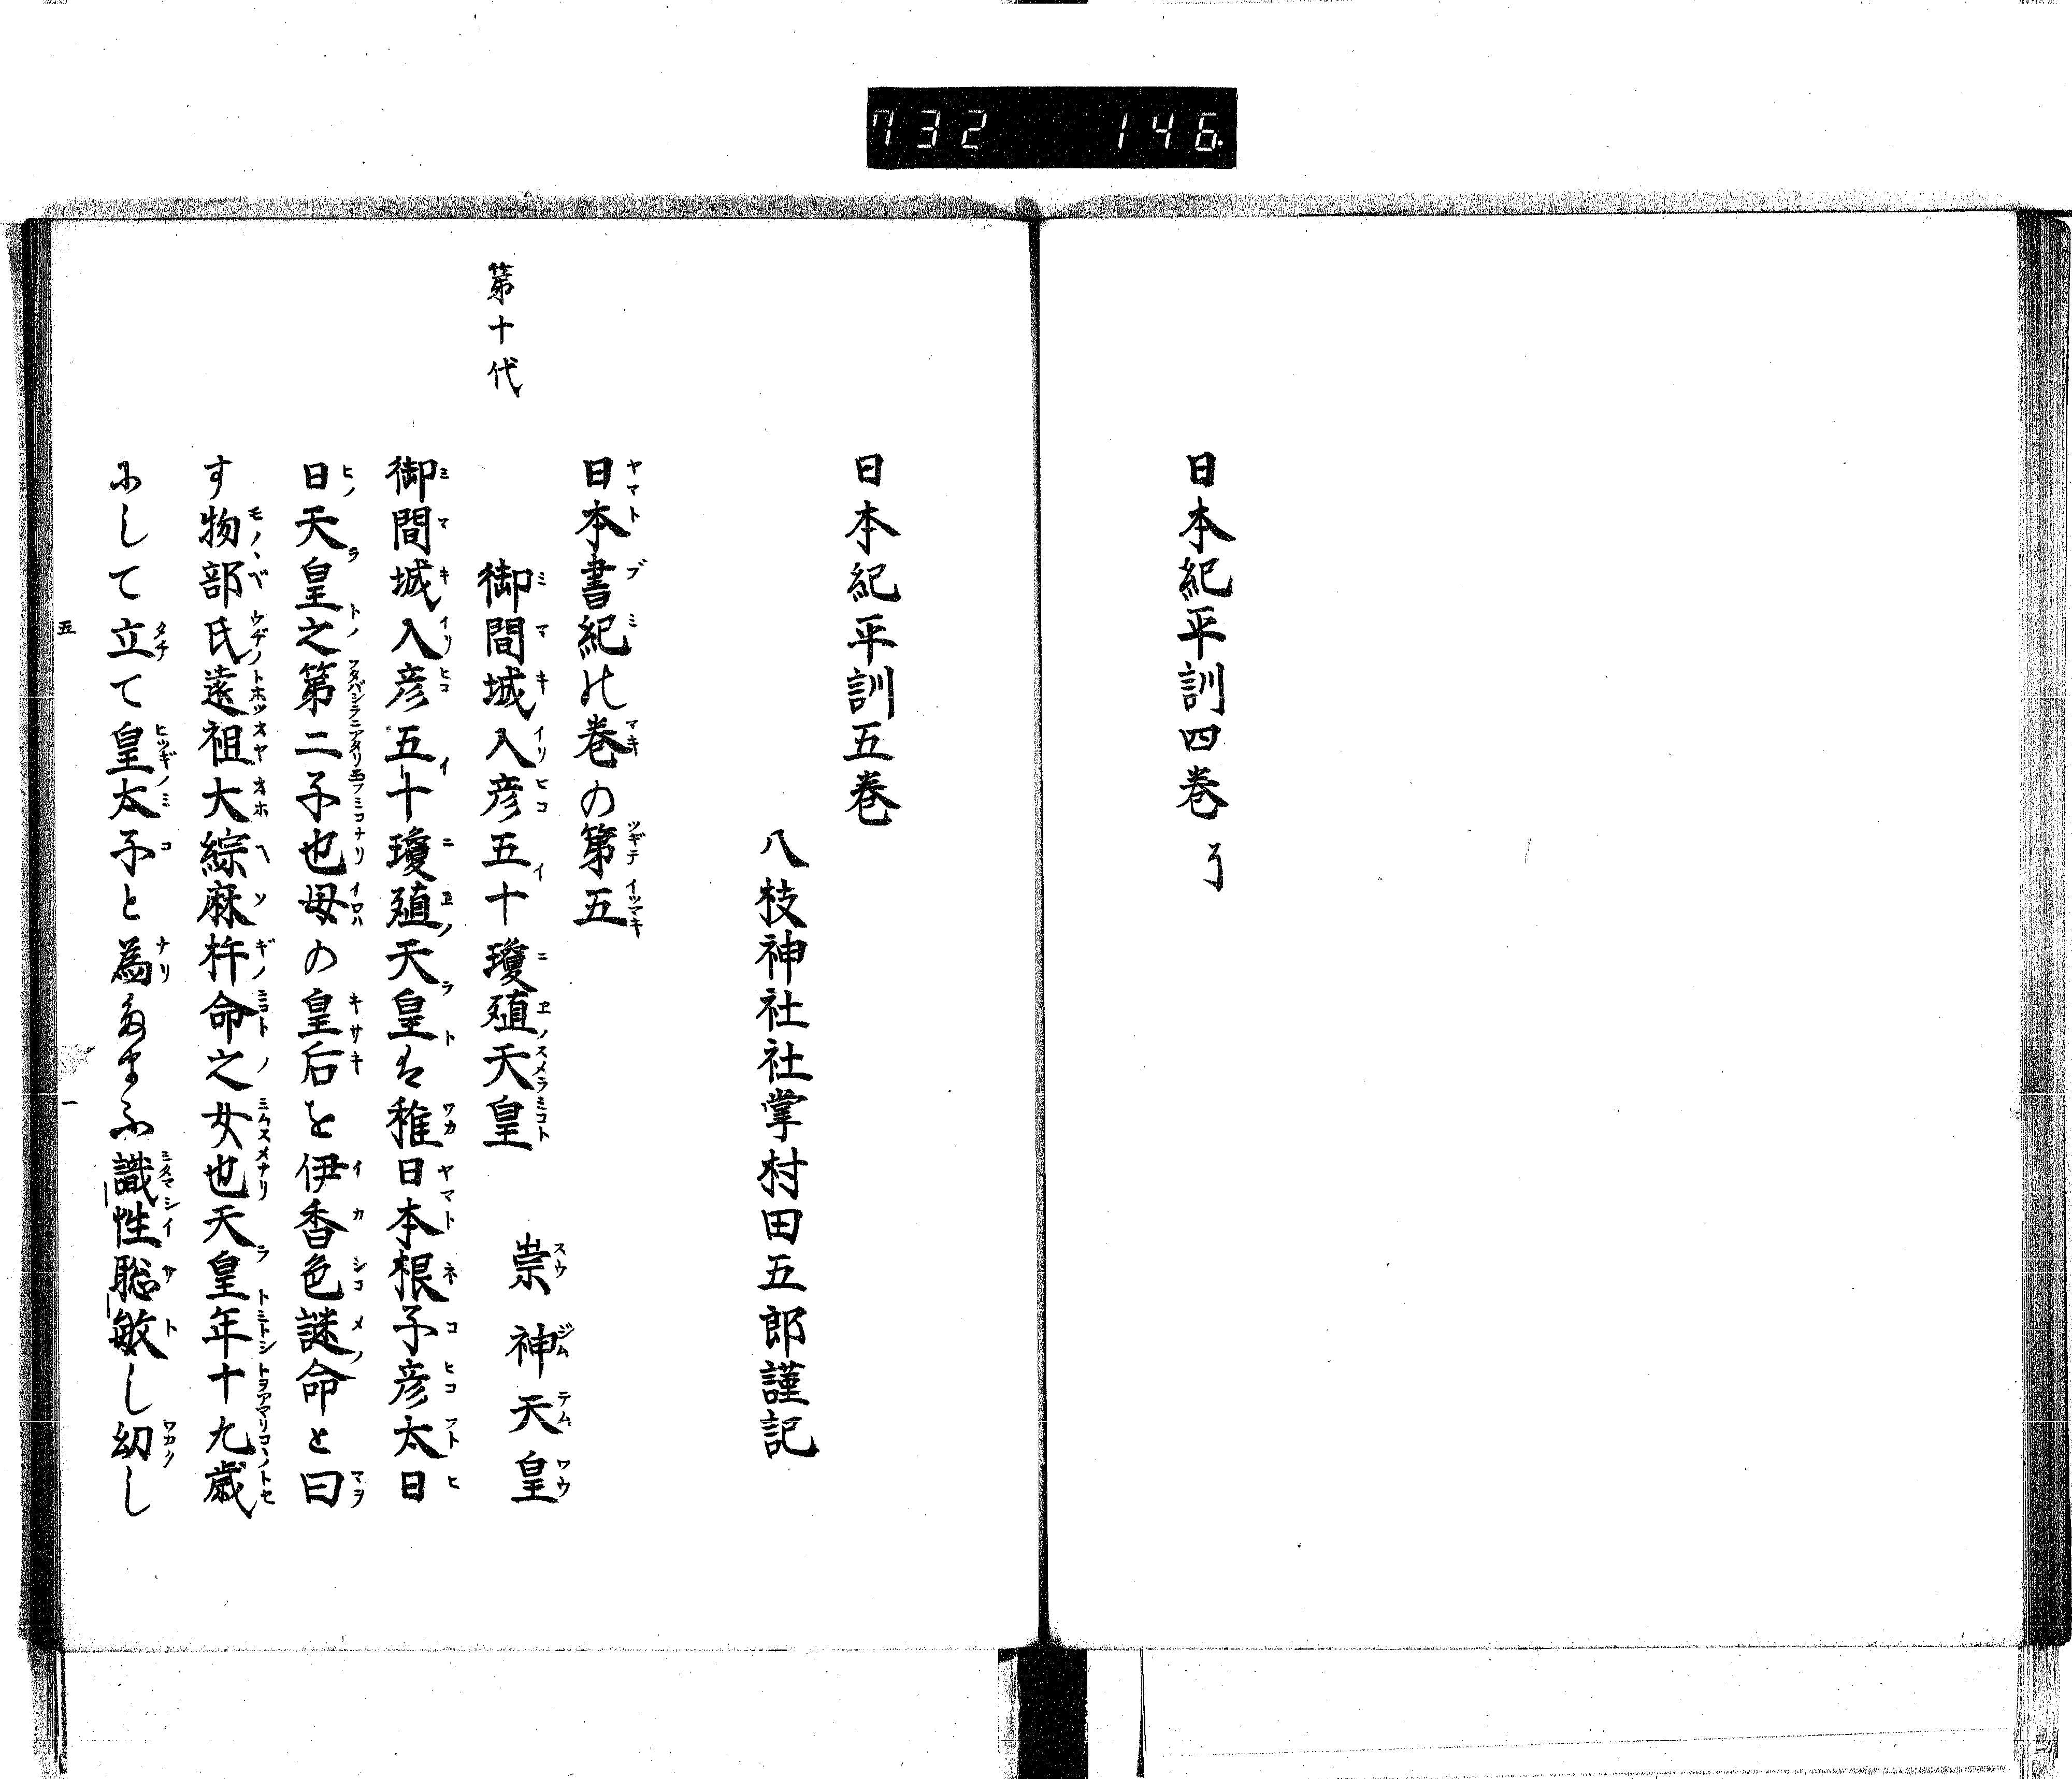 732 146
日本紀平訓四巻
日本紀平訓五巻
八枝神社社掌村田五郎謹記
日本書紀れ巻の第五
第十代
御間城入彦五十瓊殖天皇 崇神天皇
御間城入彦五十瓊殖天皇は稚日本根子彦太日
日天皇之第二子也母の皇后を伊香色謎命と曰
す物部氏遠祖大綜麻杵命之女也天皇年十九歳
にして立て皇太子と為たまふ識性聡敏し幼し
五
一